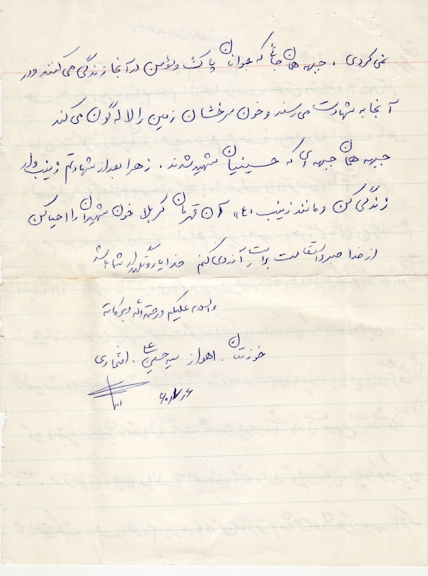 نمی کردی . جبهه همان جائی که جوانان پاک و مؤمن در آنجا زندگی می کنند و در
آنجا به شهادت می رسند و خون سرخشان زمین را لاله گون می کند
جبهه همان جبهه ای که حسینیان شهید شدند . زهرا بعد از شهادتم زینب وار
زندگی کن و مانند زینب «ع» آن قهرمان کربلا خون شهیدان را احیا کن
از خدا صبر و استقامت برایت آرزو می کنم خدا یار و نگهدار شما باشد
والسلام علیکم و رحمة الله و برکاته
خوزستان . اهواز سید حسین . افتخاری